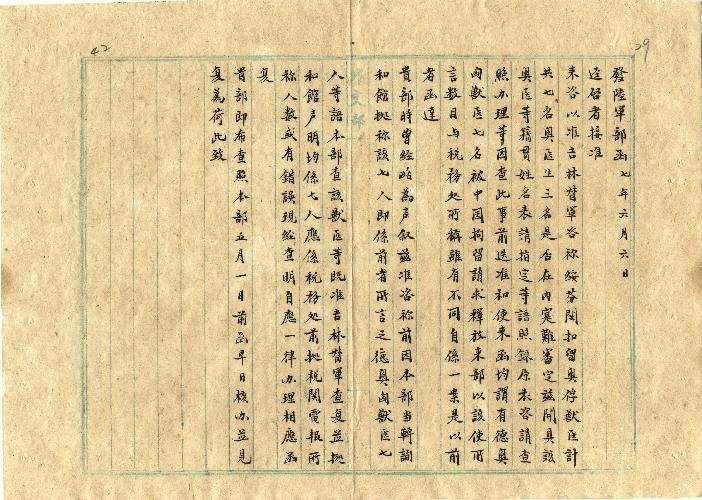 29
42
發陸軍部函七年六月六日
逕啓者接准
來咨以准吉林督軍咨称綏芬関扣留奧俘獸医計
共七名奧医生三名是否在內寔難審定兹開具該
奧医等籍貫姓名表請指定等語照錄原表咨請查
照办理等因查此事前迭准和使来函均謂有德奧
肉獸医七名被中国拘留請求釋放来部以該使所
言数目与税務处所稱雖有不同自係一案是以前
者函達
貴部時曾經略為声叙兹准咨称前因本部当轉詢
和館拠称該七人即係前者所言之德奧肉獸医七
人等語本部查該獸医等既准吉林督軍查复並拠
和館声明均係七人應係税務处前拠税関電報所
称人数或有錯誤現經查明自應一律办理相應函
复
貴部即希查照本部五月一日前函早日核办並見
复為荷此致
外交部